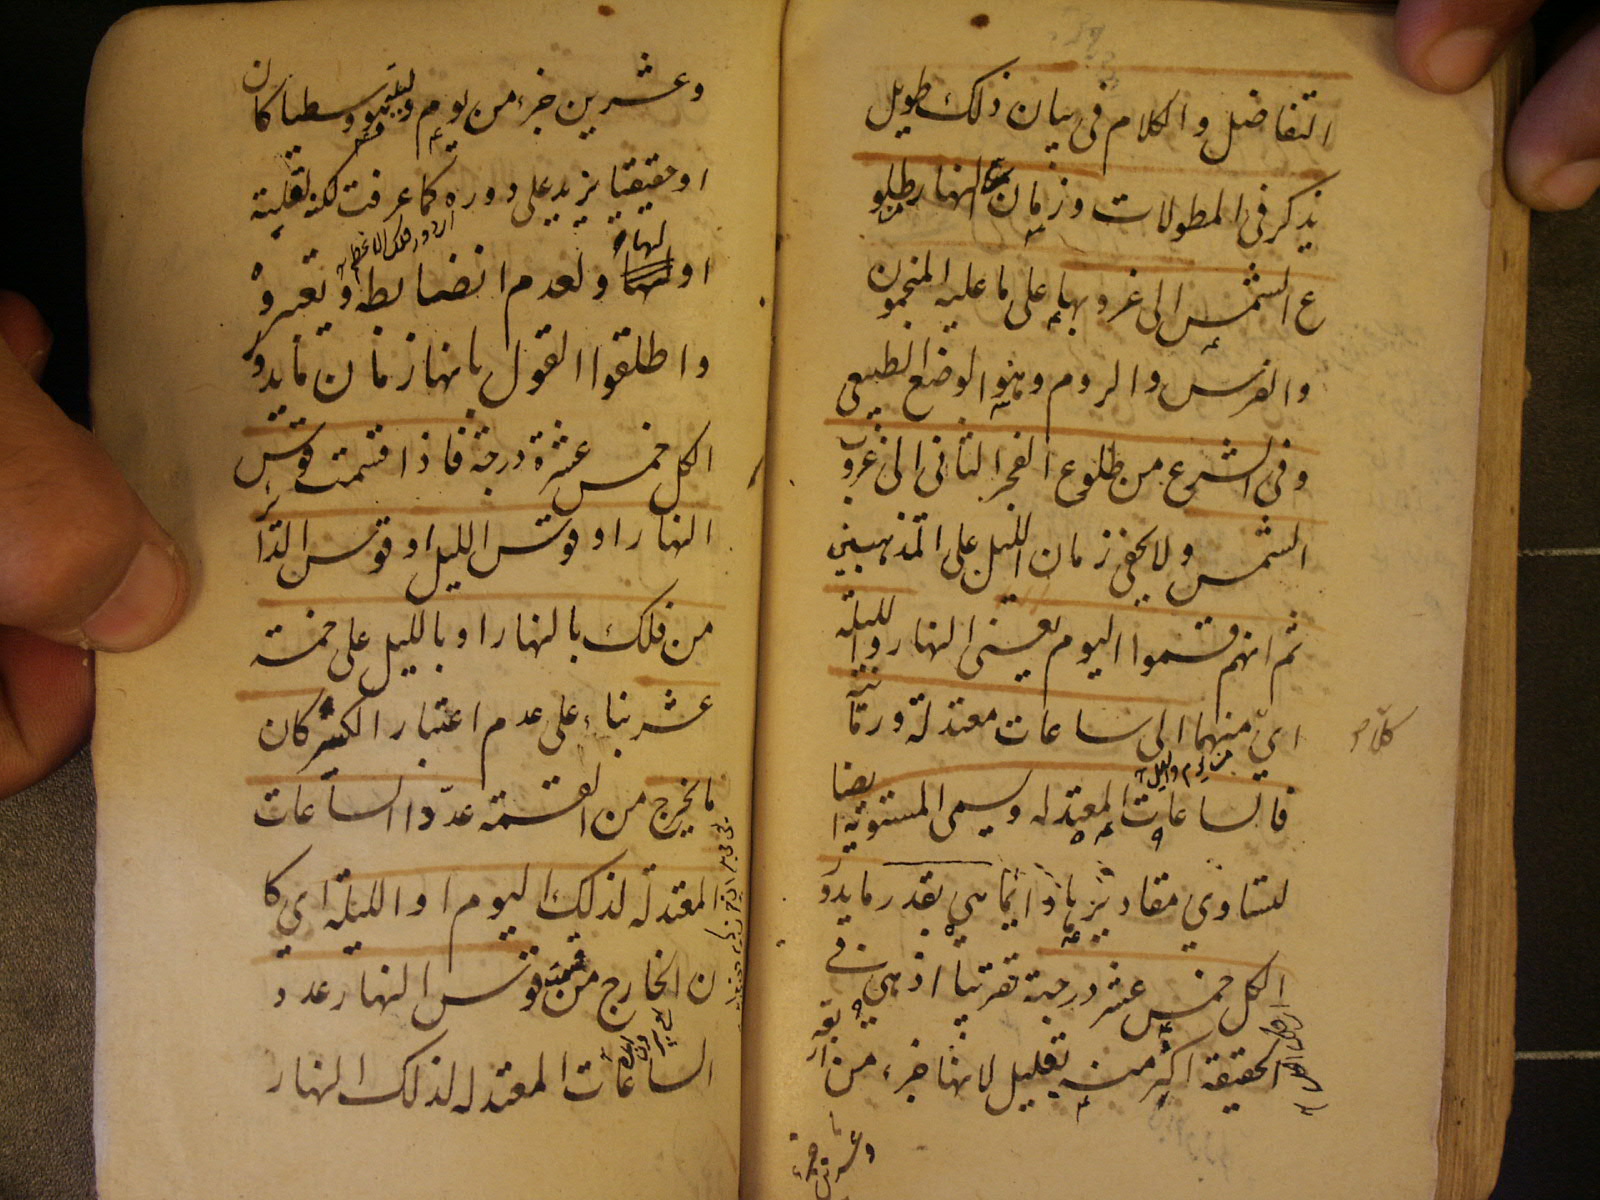 التفاضل والكلام في بيان ذلك طويل
يذكر في المطولات وزمان النهار من طلو
ع الشمس الى غروبها على ما عليه المنجمون
والفرس والروم وهو الوضع الطبيعي
وفي الشرع من طلوع الفجر الثاني الى غروب
الشمس ولا يخفى زمان الليل على المذهبين
ثم انهم قسموا اليوم يعنى النهار والليلة
اي منهما الى ساعات معتدلة وزمانية
فالساعات المعتدله ويسمى المستوية ايضا
لتساوي مقاديرها دائما هي بقدر ما يدور
الكل خمس عشر درجة تقريبا اذ هي في
الحقيقة اكثر منه بقليل لانها جزء من اربعة
وعشرين جزء
كلام
وعشرين جزء من يوم وليلته وسطيا كان
او حقيقيا يزيد على دوره كما عرفت لكنه لقلته
اولها ولعدم انضباطه وتعسره
اى دور فلك الاعظم
واطلقوا القول بانها زمان ما يدور
الكل خمس عشرة درجة فاذا قسمت قوس
النهار او قوس الليل او قوس الدائر
من فلك بالنهار او بالليل على خمسة
عشر بناء على عدم اعتبار الكسر كان
ما يخرج من القسمة عدد الساعات
المعتدلة لذلك اليوم او الليلة اي كا
ن الخارج من قسمة قوس النهار عدد
الساعات المعتدله لذلك النهار